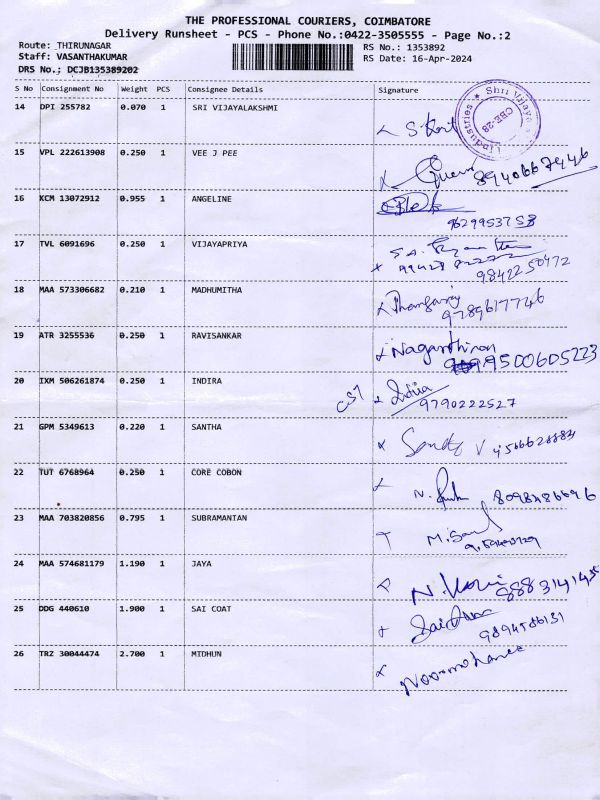 THE PROFESSIONAL COURIERS, COIMBATORE
Delivery Runsheet - PCS - Phone No.:0422-3505555 - Page No.:2
Route: THIRUNAGAR
Staff: VASANTHAKUMAR
DRS No.; DCJB135389202
RS No.: 1353892
RS Date: 16-Apr-2024
S No Consignment No Weight PCS Consignee Details Signature
14 DPI 255782 0.070 1 SRI VIJAYALAKSHMI
Shri Vijaya Industries CBE-28
15 VPL 222613908 0.250 1 VEE J PEE
8940667446
16 KCM 13072912 0.955 1 ANGELINE
9629953758
17 TVL 6091696 0.250 1 VIJAYAPRIYA
9842250472
18 MAA 573306682 0.210 1 MADHUMITHA
9789617746
19 ATR 3255536 0.250 1 RAVISANKAR
9500605223
20 IXM 506261874 0.250 1 INDIRA
CST Indira
9790222527
21 GPM 5349613 0.220 1 SANTHA
22 TUT 6768964 0.250 1 CORE COBON
23 MAA 703820856 0.795 1 SUBRAMANTAN
24 MAA 574681179 1.190 1 JAYA
25 DDG 440610 1.900 1 SAI COAT
9894586131
26 TRZ 30044474 2.700 1 MIDHUN